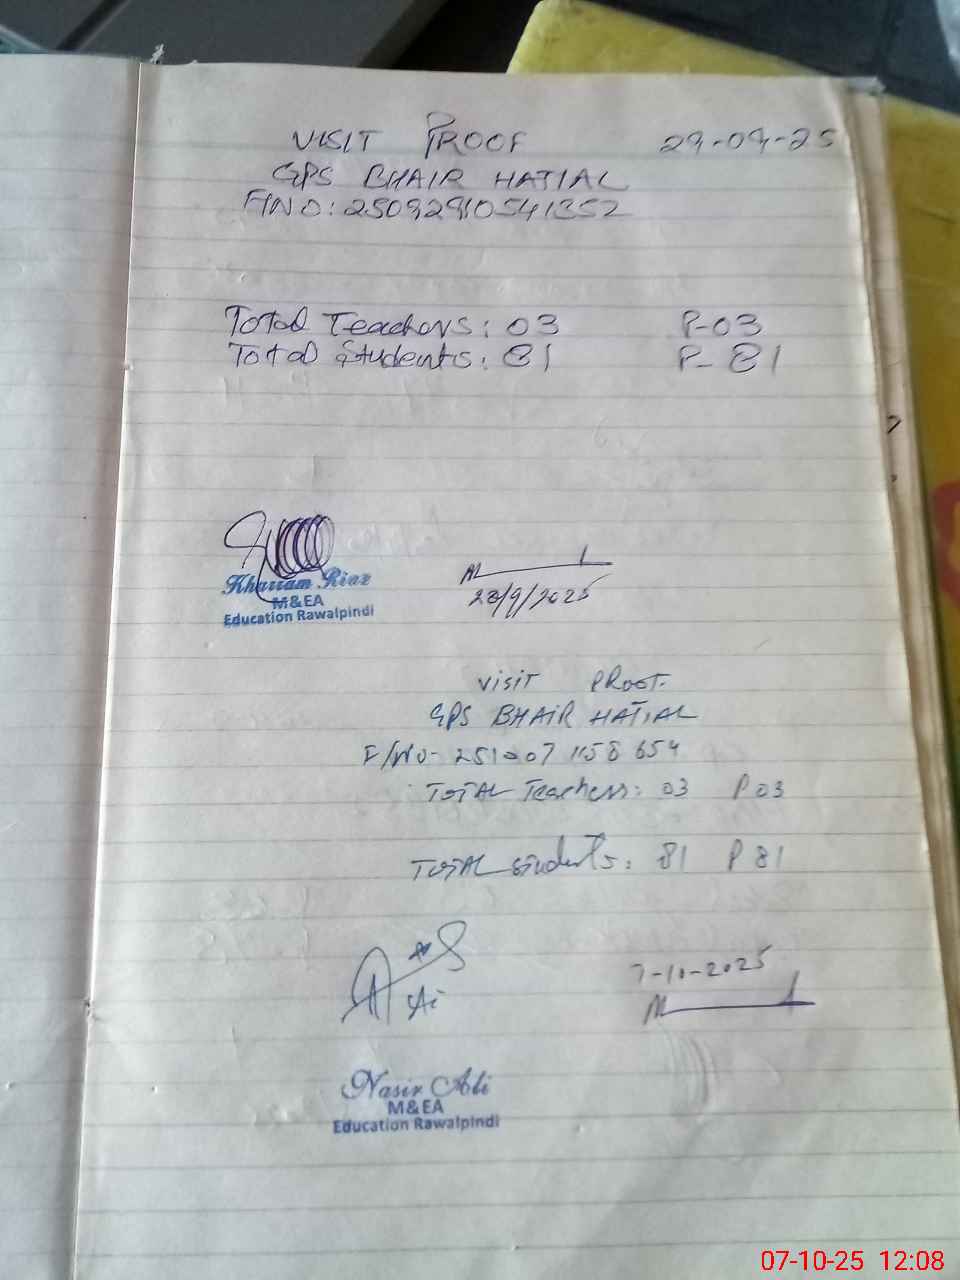 VISIT PROOF 29-09-25
GPS BHAIR HATIAL
F/NO: 25092910541352
Total Teachers: 03 P-03
Total Students: 81 P-81
Kharram Riaz
M&EA
Education Rawalpindi
29/9/2025
Visit PRoof.
GPS BHAIR HATIAL
F/No- 251007 1158 654
TOTAL Teachers: 03 P 03
TOTAL students: 81 P 81
7-10-2025
Nasir Ali
M&EA
Education Rawalpindi
07-10-25 12:08